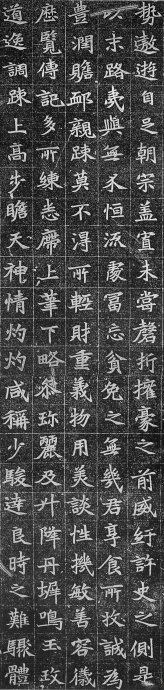 勢遨遊自足朝宗盖宜未嘗磬折擁豪之前威紆許史之側是
以末路歲與每不恒流處冨忘貧免之無幾君享食所收誠為
豊潤贍邺親踈莫不淂所輕財重義物用美談性機敏善容儀
歷覽傳記多所練悉牓上筆下略㳟珎麗及升降丹墀鳴玉玫
道逸調踈上高步瞻天神情灼灼咸稱少駿達良時之難驟體